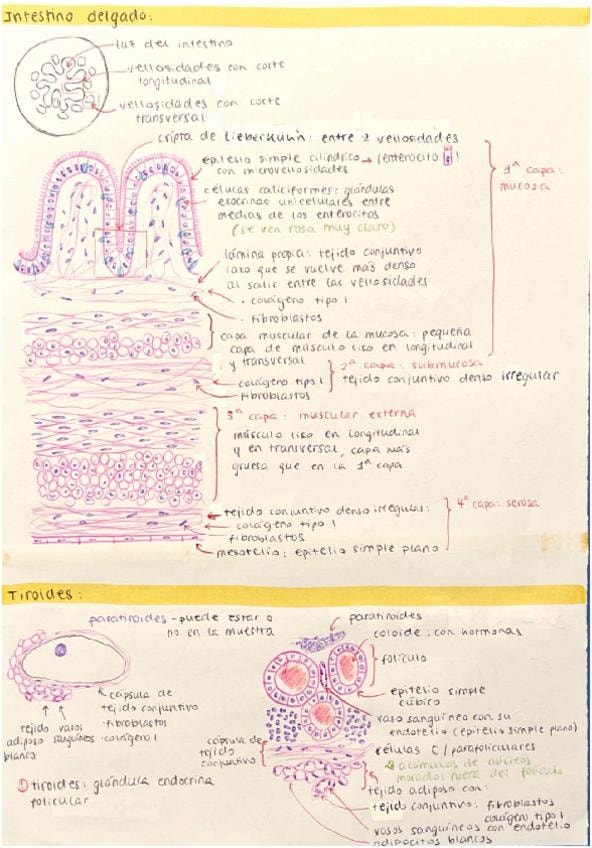 Intestino delgado:
luz del intestino
vellosidades con corte
longitudinal
vellosidades con corte
transversal
cripta de Lieberkühn: entre 2 vellosidades
epitelio simple cilíndrico → (enterocito )
con microvellosidades
células caliciformes: glándulas
exocrinas unicelulares entre
medias de los enterocitos
(se ven rosa muy claro)
1ª capa:
mucosa
lámina propia: tejido conjuntivo
laxo que se vuelve más denso
al salir entre las vellosidades
· colágeno tipo 1
· fibroblastos
capa muscular de la mucosa: pequeña
capa de músculo liso en longitudinal
y transversal
2ª capa: submucosa
colágeno tipo 1
fibroblastos
tejido conjuntivo denso irregular
3ª capa: muscular externa
músculo liso en longitudinal
y en transversal, capa más
gruesa que en la 1ª capa
tejido conjuntivo denso irregular:
colágeno tipo 1
fibroblastos
mesotelio: epitelio simple plano
4ª capa: serosa
Tiroides:
paratiroides - puede estar o
no en la muestra
cápsula de
tejido conjuntivo
· fibroblastos
· colágeno 1
tejido
adiposo
blanco
vasos
sanguíneos
① tiroides: glándula endocrina
folicular
paratiroides
coloide: con hormonas
folículo
epitelio simple
cúbico
vaso sanguíneo con su
endotelio (epitelio simple plano)
células C / parafoliculares
acúmulos de núcleos
morados fuera del folículo
cápsula de
tejido
conjuntivo
tejido adiposo con:
tejido conjuntivo: fibroblastos
colágeno tipo 1
vasos sanguíneos con endotelio
adipocitos blancos